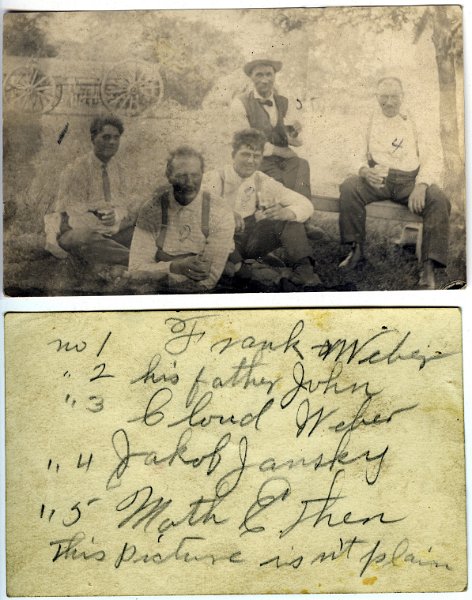 4
2
no 1 Frank Weber
" 2 his father John
" 3 Cloud Weber
" 4 Jakob Jansky
" 5 Math Ethen
this picture isn't plain